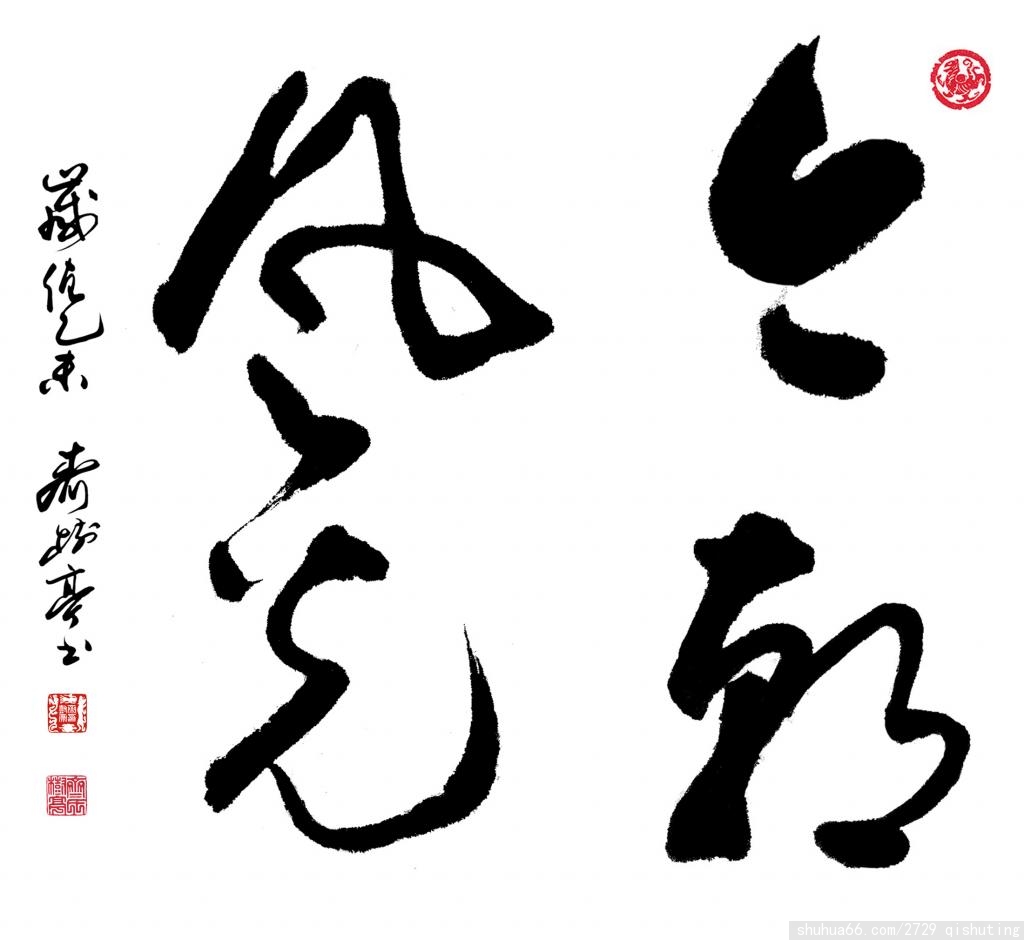 今朝
風光
歲值乙未 齊樹亭书
shuhua66.com/2729 qishuting